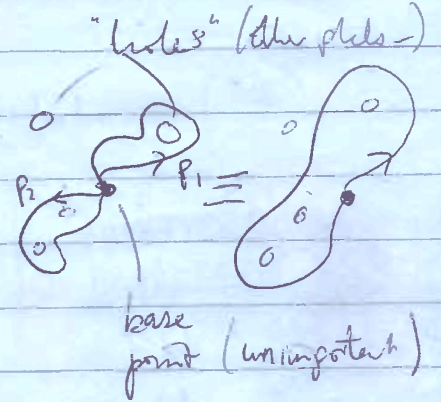 "holes" (other
p₂ p₁ ≡
base
point (unimportant)